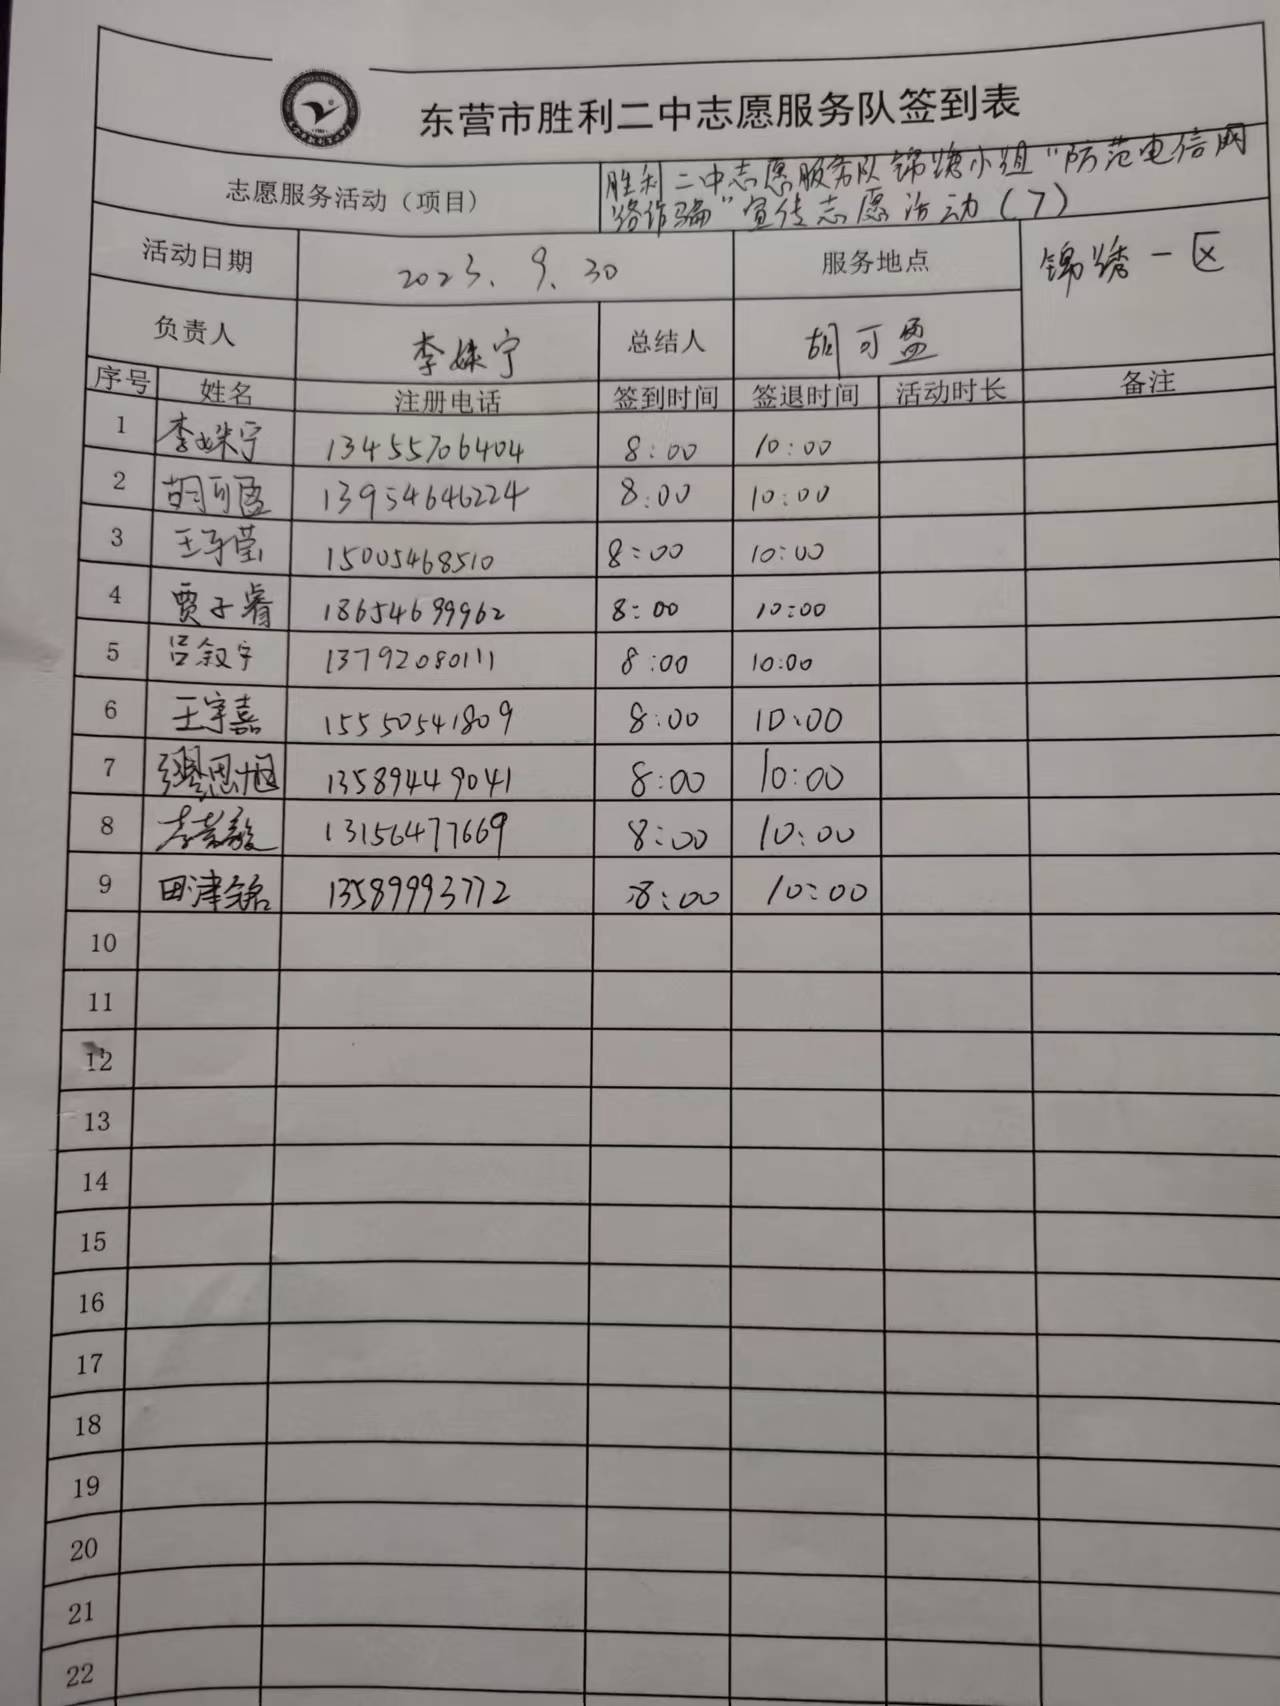 东营市胜利二中志愿服务队签到表
志愿服务活动（项目） 胜利二中志愿服务队锦绣小组“防范电信网
络诈骗”宣传志愿活动(7)
活动日期 2023.9.30 服务地点 锦绣一区
负责人 李姝宁 总结人 胡可盈
序号 姓名 注册电话 签到时间 签退时间 活动时长 备注
1 李姝宁 13455706404 8:00 10:00
2 胡可盈 13954646224 8:00 10:00
3 王子莹 15005468510 8:00 10:00
4 贾子睿 18654699962 8:00 10:00
5 吕叙宇 13792080111 8:00 10:00
6 王宇嘉 15550541809 8:00 10:00
7 13589449041 8:00 10:00
8 13156477669 8:00 10:00
9 田津铭 13589993772 8:00 10:00
10
11
12
13
14
15
16
17
18
19
20
21
22